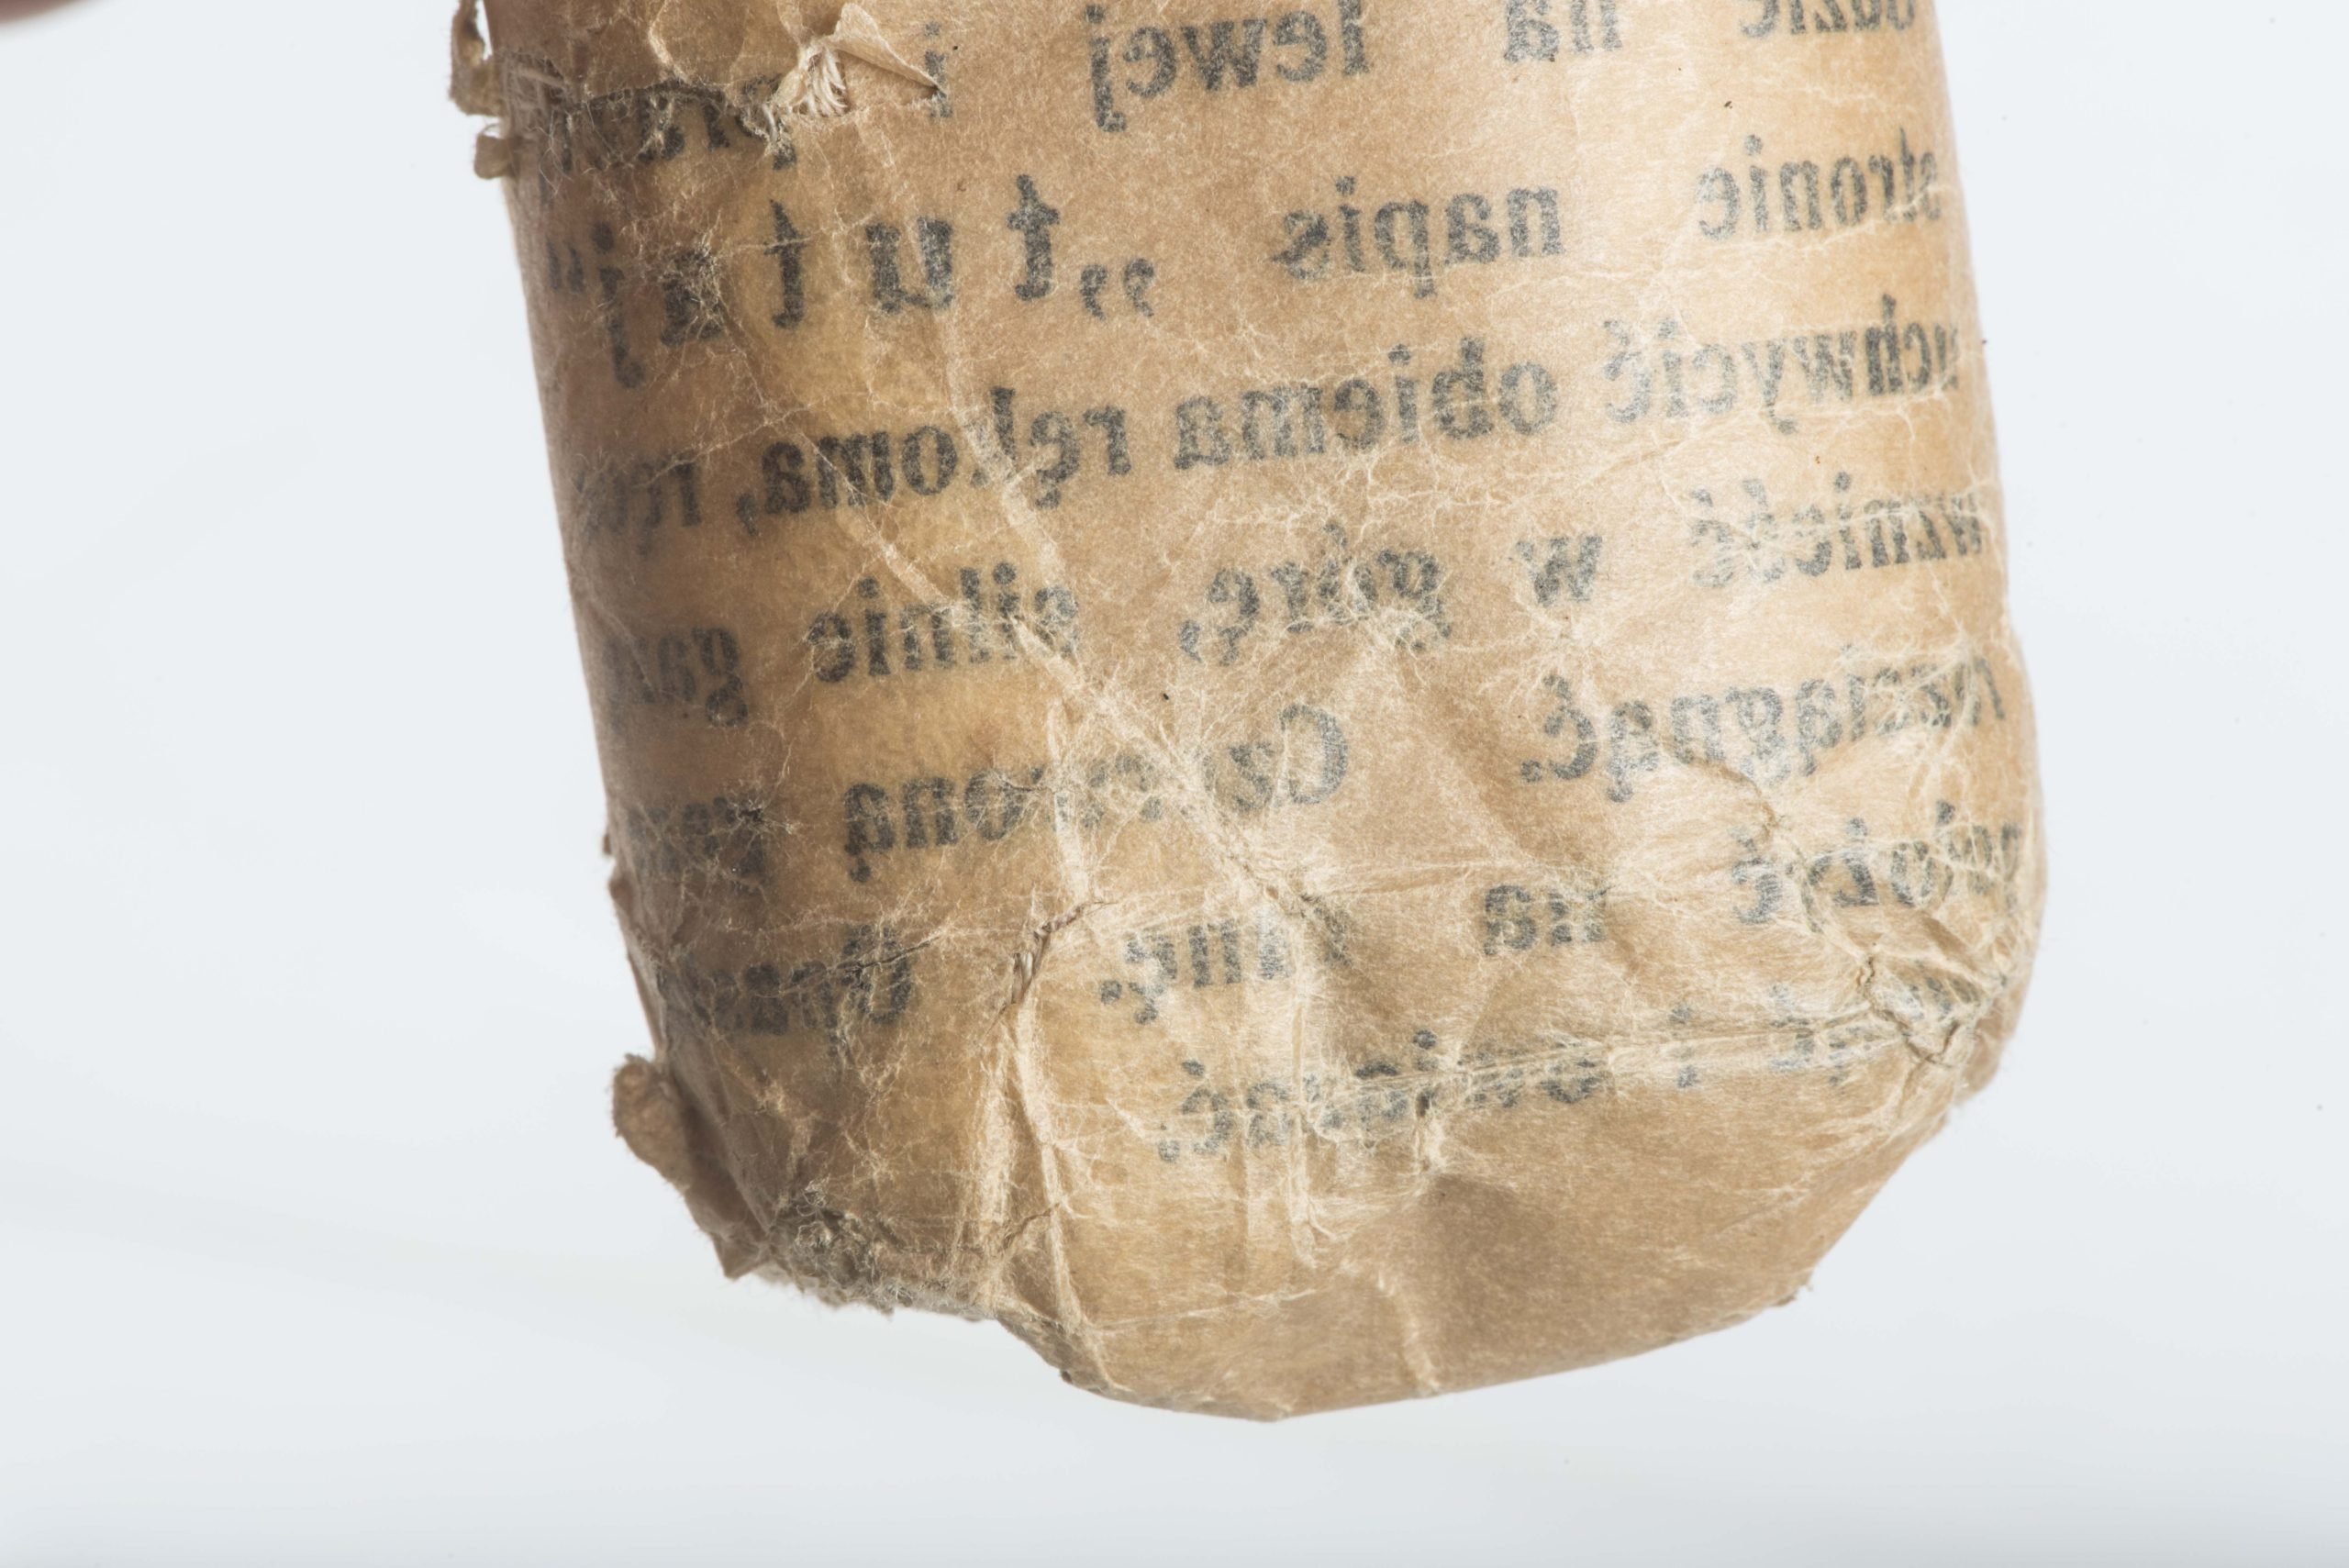 na lewej i
stronie napis „tutaj“
uchwycić obiema rękoma, ręce
wznieść w górę, silnie
rozciągnąć. Czerwoną
położyć na ranę.
i owiązać.